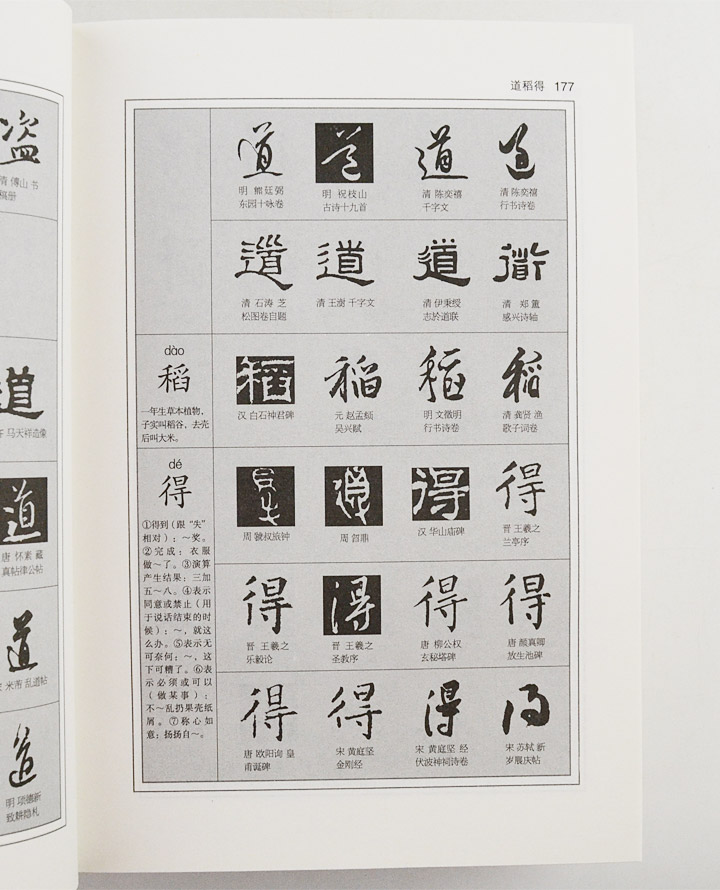 盗
清 傅山 书
道
马天祥造像
道
唐 怀素 藏
真帖律公帖
道
米芾 乱道帖
道
明 项德新
致耕隐札
道稻得 177
道 道 道 道
明 熊廷弼
东园十咏卷
明 祝枝山
古诗十九首
清 陈奕禧
千字文
清 陈奕禧
行书诗卷
道 道 道 衟
清 石涛 芝
松图卷自题
清 王澍 千字文
清 伊秉绶
志於道联
清 郑簠
感兴诗轴
dào
稻
一年生草本植物,
子实叫稻谷,去壳
后叫大米。
稻 稻 稻 稻
汉 白石神君碑
元 赵孟頫
吴兴赋
明 文徵明
行书诗卷
清 龚贤 渔
歌子词卷
dé
得
①得到(跟“失”
相对):~奖。
②完成:衣服
做~了。③演算
产生结果:三加
五~八。④表示
同意或禁止(用
于说话结束的时
候):~,就这
么办。⑤表示无
可奈何:~,这
下可糟了。⑥表
示必须或可以
(做某事):
不~乱扔果壳纸
屑。⑦称心如
意:扬扬自~。
得 得 得 得
周 虢叔旅钟
周 曶鼎
汉 华山庙碑
晋 王羲之
兰亭序
得 得 得 得
晋 王羲之
乐毅论
晋 王羲之
圣教序
唐 柳公权
玄秘塔碑
唐 颜真卿
放生池碑
得 得 得 得
唐 欧阳询 皇
甫诞碑
宋 黄庭坚
金刚经
宋 黄庭坚 经
伏波神祠诗卷
宋 苏轼 新
岁展庆帖